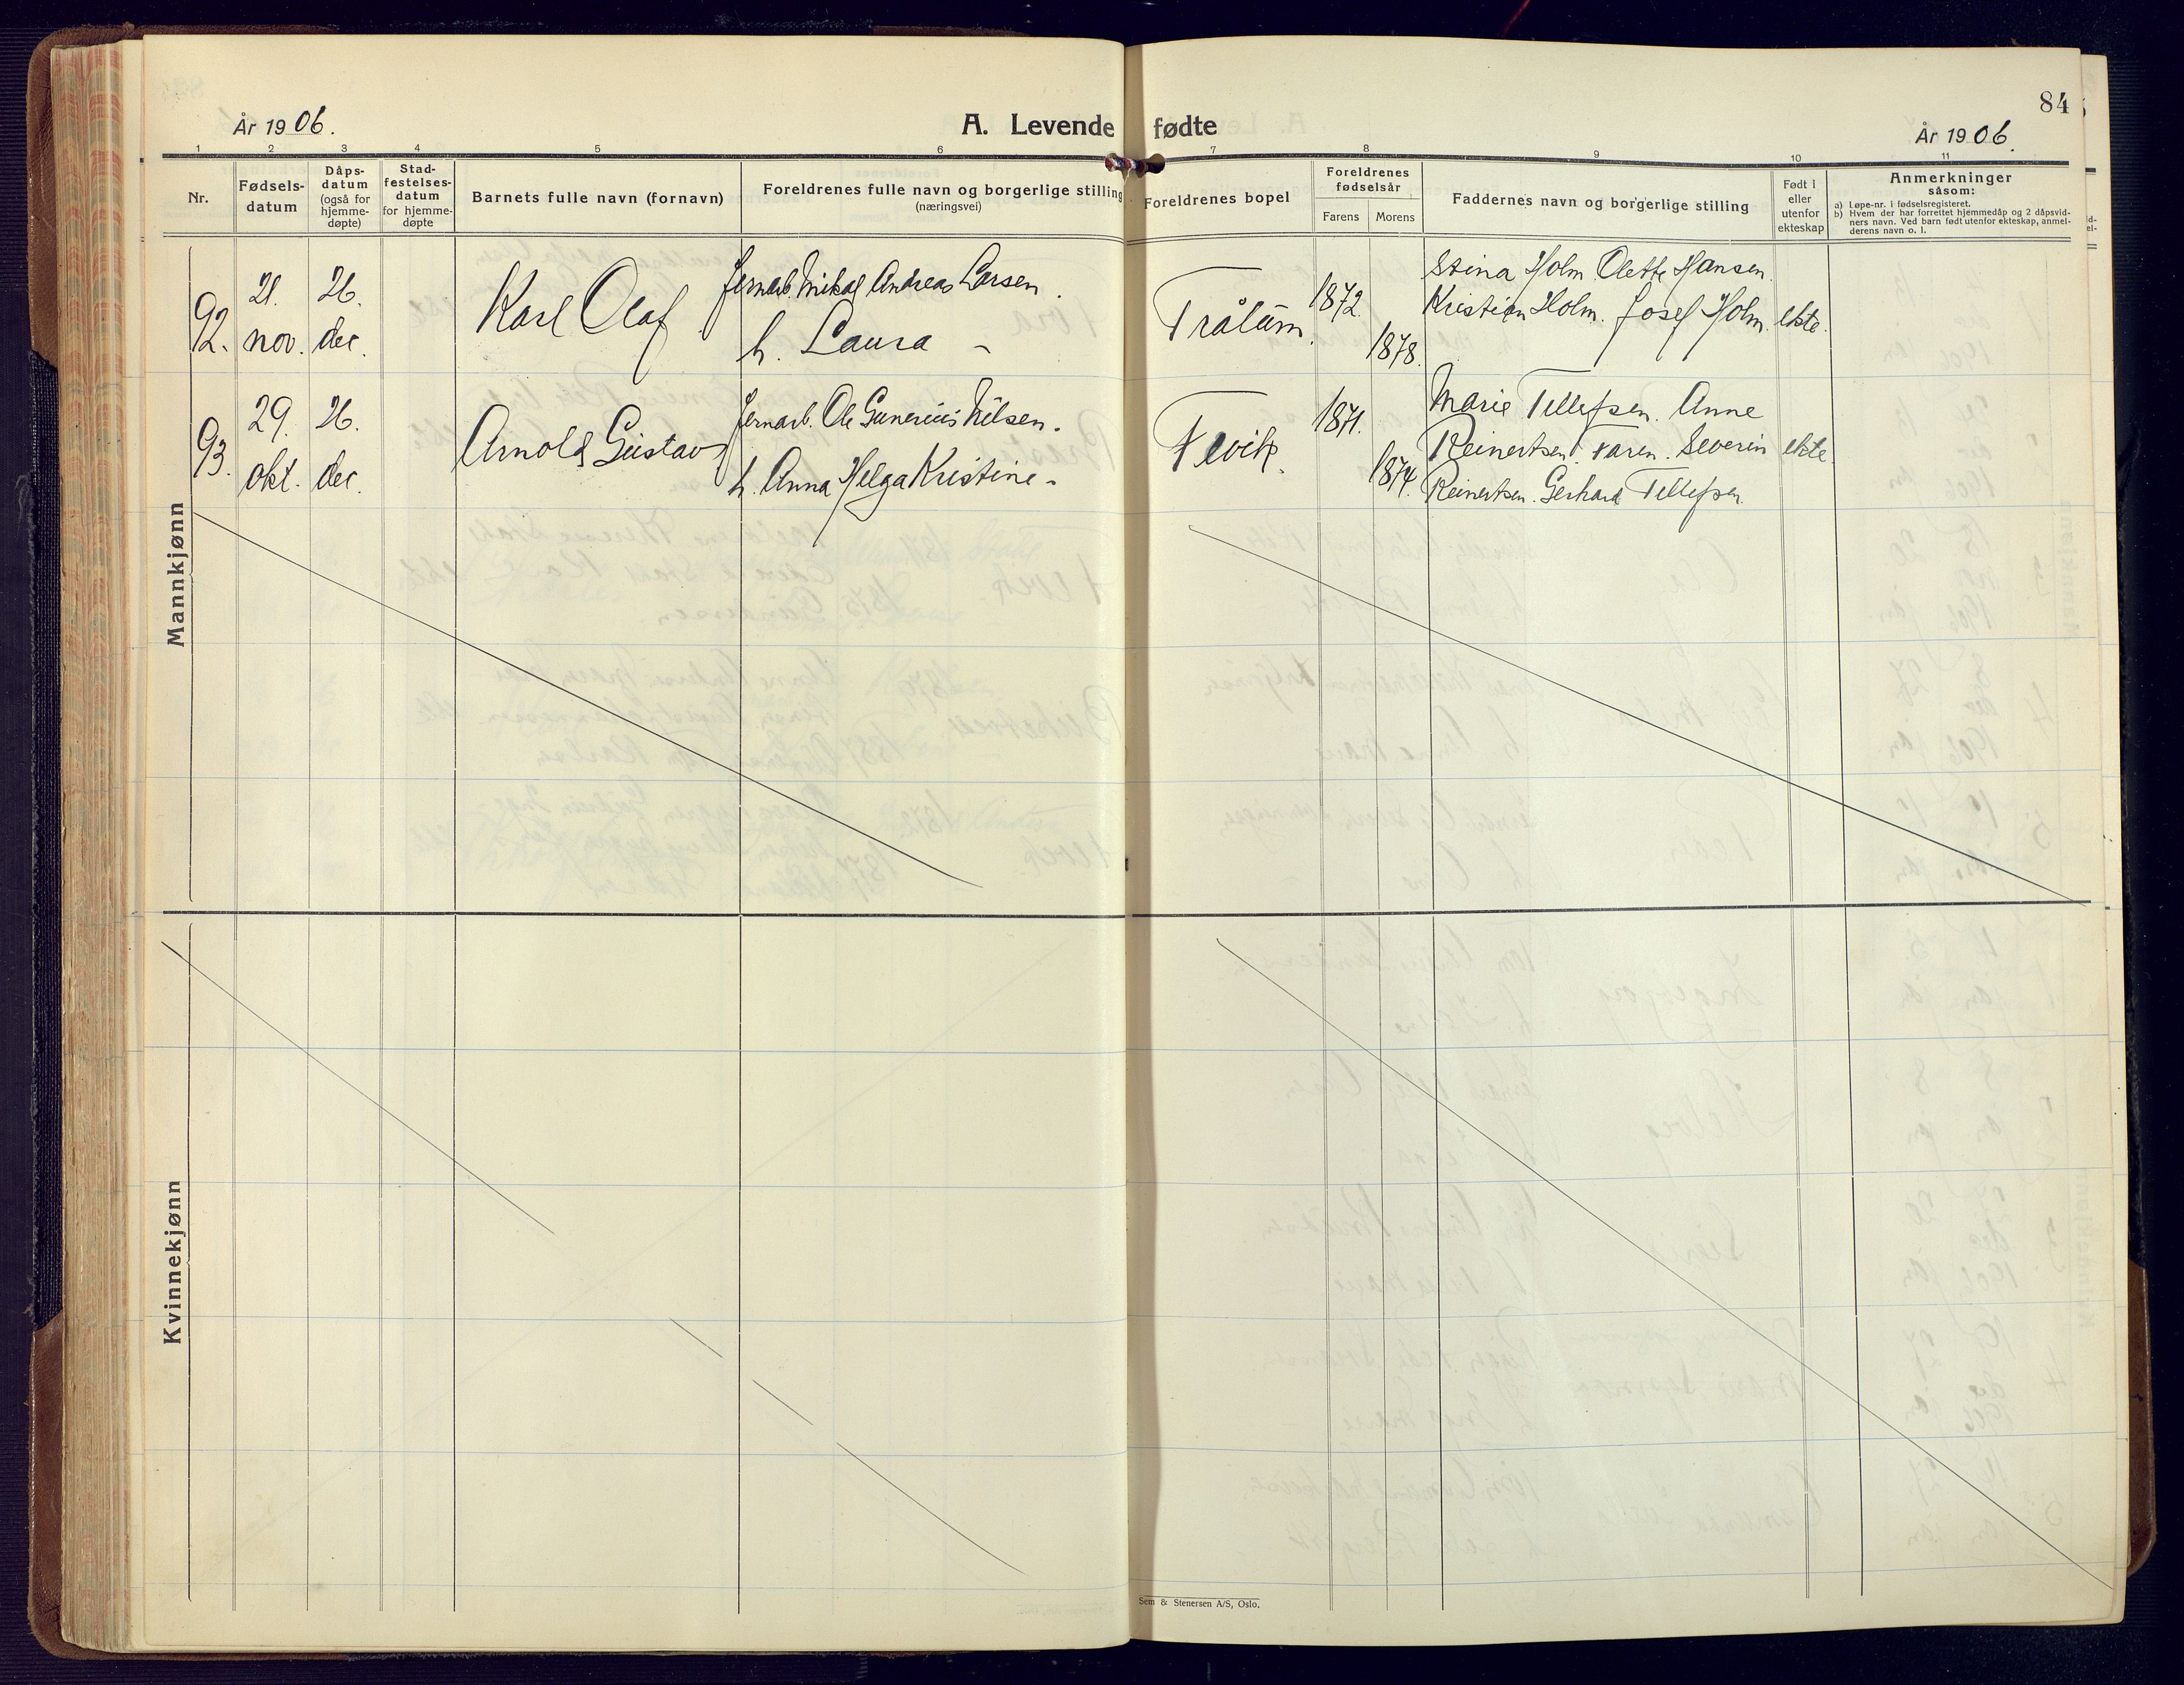 84
År 1906.
A. Levende fødte
År 1906.
1 2 3 4 5 6 7 8 9 10 11
Nr.
Fødsels-
datum
Dåps-
datum
(også for
hjemme-
døpte)
Stad-
festelses-
datum
for hjemme-
døpte
Barnets fulle navn (fornavn)
Foreldrenes fulle navn og borgerlige stilling
(næringsvei)
Foreldrenes bopel
Foreldrenes
fødselsår
Farens
Morens
Faddernes navn og borgerlige stilling
Født i
eller
utenfor
ekteskap
Anmerkninger
såsom:
a) Løpe-nr. i fødselsregisteret.
b) Hvem der har forrettet hjemmedåp og 2 dåpsvid-
ners navn. Ved barn født utenfor ekteskap, anmel-
derens navn o. l.
Mannkjønn
92.
21.
nov.
26.
dec.
Karl Olaf
Jernarb. Mikal Andreas Larsen.
h. Laura -
Trålum.
1872.
1878.
Stina Holm Olette Hansen.
Kristian Holm. Josef Holm.
ekte.
93.
29.
okt.
26.
dec.
Arnold Gustav
Jernarb. Ole Gunerius Nilsen.
h. Anna Helga Kristine -
Fevik.
1871.
1874.
Marie Tellefsen. Anne
Reinertsen. Karen. Severin
Reinertsen. Gerhard Tellefsen.
ekte.
Kvinnekjønn
Sem & Stenersen A/S, Oslo.